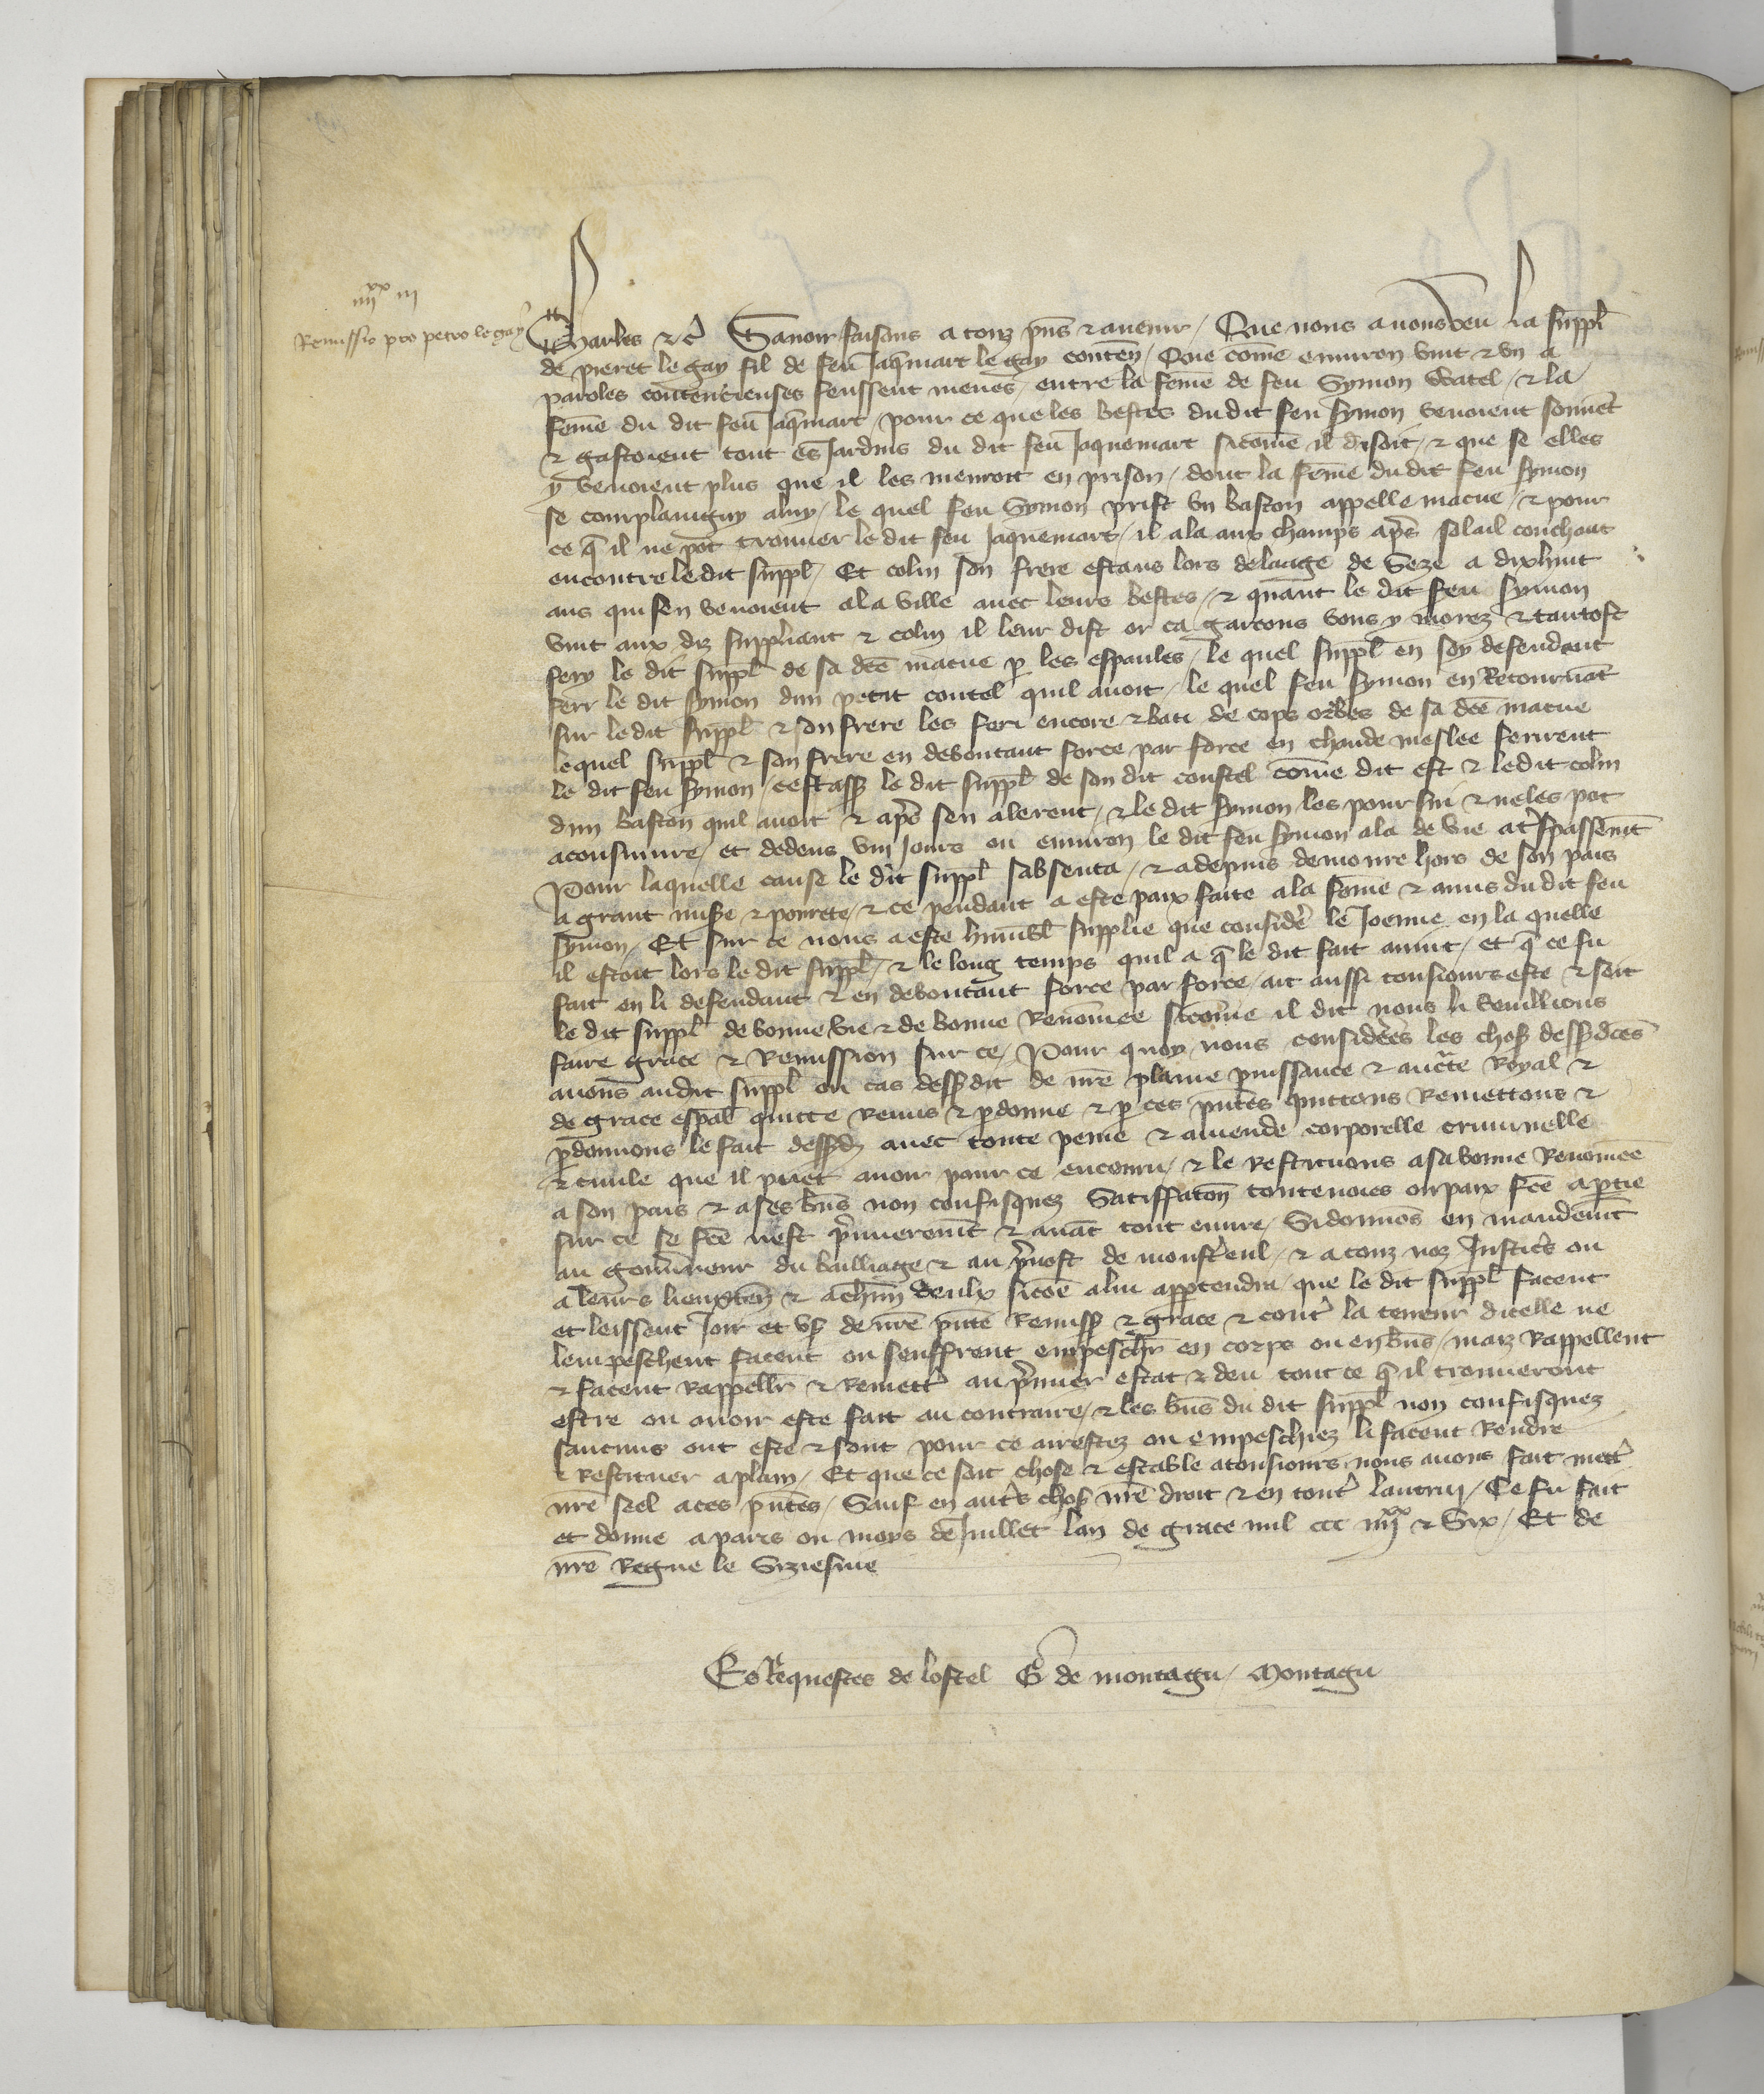 iiiixx iii
Remissio pro petro le gay
Charles &c̃ Sauoir faisons a touz pn̄s & auenir / Que nous auons veu la suppl̃
de pieret le gay fil de feu Jaq̃mart le gay conteñ / Que com̃e enuiron vint & vn a
paroles contencieuses feussent meues / entre la fem̃e de feu Symon Watel / & la
fem̃e du dit feu Jaq̃mart / pour ce que les bestes du dit feu symon venoient souuet̃
& gastoient tout es Jardins du dit feu Jaquemart sicom̃e il disoit / & que se elles
y venoient plus que il les menroit en prison / dont la fem̃e du dit feu symon
se complaingny a luy / le quel feu Symon prist vn baston appelle macue / & pour
ce q̃ il ne pot trouuer le dit feu Jaquemart / il ala aux champs apr̃s solail couchant
encontre le dit suppl̃ / Et colin son frere estans lors de laage de seze a dixhuit
ans qui sen venoient a la ville auec leurs bestes / & quant le dit feu symon
vint aux diz suppliant & colin il leur dist or ca garcons vous y morez & tantost
fery le dit suppl̃ de sa dc̃e macue p̱ les espaules / le quel suppl̃ en soy defendant
feri le dit symon dun petit coutel quil auoit / le quel feu symon en Retournãt
sur le dit suppl̃ & son frere les feri encore & bati de cops orbes de sa dc̃e macue
lequel suppl̃ & son frere en deboutant force par force en chaude meslee ferirent
le dit feu symon / cestass̃ le dit suppl̃ de son dit coustel com̃e dit est & le dit colin
dun baston quil auoit & apr̃s sen alerent / & le dit symon les poursui & ne les pot
aconsuiure / et dedens viii Jours ou enuiron le dit feu symon ala de vie a tr̃spassem̃t
Pour laquelle cause le dit suppl̃ sabsenta / & a depuis demoure hors de son pais
a grant mis̃e & pourete / & ce pendant a este paix faite a la fem̃e & amis du dit feu
symon / Et sur ce nous a este humbl̃ supplie que consider̃ le Joenne en la quelle
il estoit lors le dit suppl̃ / & le long temps quil a q̃ le dit fait auint / et q̃ ce fu
fait en li defendant & en deboutant force par force / ait aussi tousiours este & soit
le dit suppl̃ de bonne vie & de bonne Renom̃ee sicom̃e il dit nous li veuillions
faire grace & Remission sur ce / Pour quoy nous considerẽs les chos̃ dess̃dc̃es
auons audit suppl̃ ou cas dess̃dit de nr̃e plaine puissance & aucte Royal &
de grace esp̃al quitte Remis & p̱donne & p̱ ces pñtes quittons Remettons &
p̱donnons le fait dess̃d̃ auec toute peine & amende corporelle criminelle
& ciuile que il puet auoir pour ce encouru / & le Restituons a sa bonne Renom̃ee
a son pais & a ses bñs non confisquez Satiffatõn toutenoies ou paix fc̃e a p̱tie
sur ce se fc̃e nest p̃mierem̃t & auãt tout euure / Si donnõs en mandem̃t
au gouũneur du bailliage & au p̃uost de monstr̃eul / & a touz noz Justicr̃s ou
a leurs lieuxteñ & a ch̃un deulx sicõe a lui app̱tendra que le dit suppl̃ facent
et leissent Joir et vs̃ de nr̃e pñte Remiss̃ & grace & contr̃ la teneur dicelle ne
lempeschent facent ou seuffrent empesch̃r en corps ou en bñs / maiz Rappellent
& facent Rappell̃r & Remettr̃ au p̃mier estat & deu tout ce q̃ il trouueront
estre ou auoir este fait au contraire / & les bñs du dit suppl̃ non confisquez
saucuns ont este & sont pour ce arrestez ou empeschiez li facent Rendre
& Restituer a plain / Et que ce soit chose & estable a tousiours nous auons fait mettr̃
nr̃e seel a ces pñtes / Sauf en autr̃s chos̃ nr̃e droit & en tout̃ lautrui / Ce fu fait
et donne a paris ou moys de Juillet lan de grace mil ccc iiiixx & Six / Et de
nr̃e Regne le Siziesme
Es Requestes de lostel G̃ de montagu / Montagu